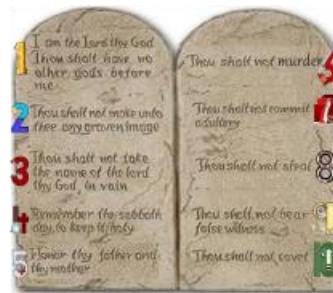 1
I am the Lord thy God
Thou shalt have no
other gods before
me
2
Thou shalt not make unto
thee any graven image
3
Thou shalt not take
the name of the lord
thy God, in vain
4
Remember the sabbath
day, to keep it holy
5
Honor thy father and
thy mother
Thou shalt not murder
7
Thou shalt not commit
adultery
8
Thou shalt not steal
9
Thou shalt not bear
false witness
Thou shalt not covet